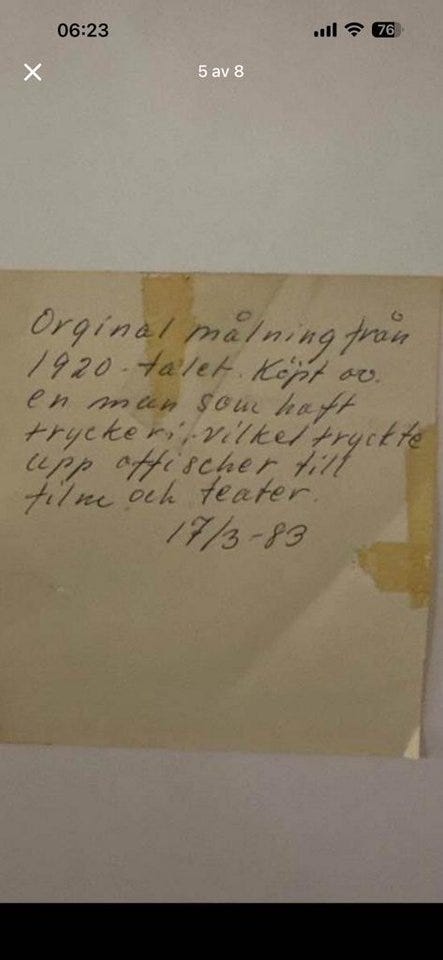 06:23
76
5 av 8
Orginal målning från
1920-talet. Köpt av
en man som haft
tryckeri, vilket tryckte
upp affischer till
film och teater.
17/3-83